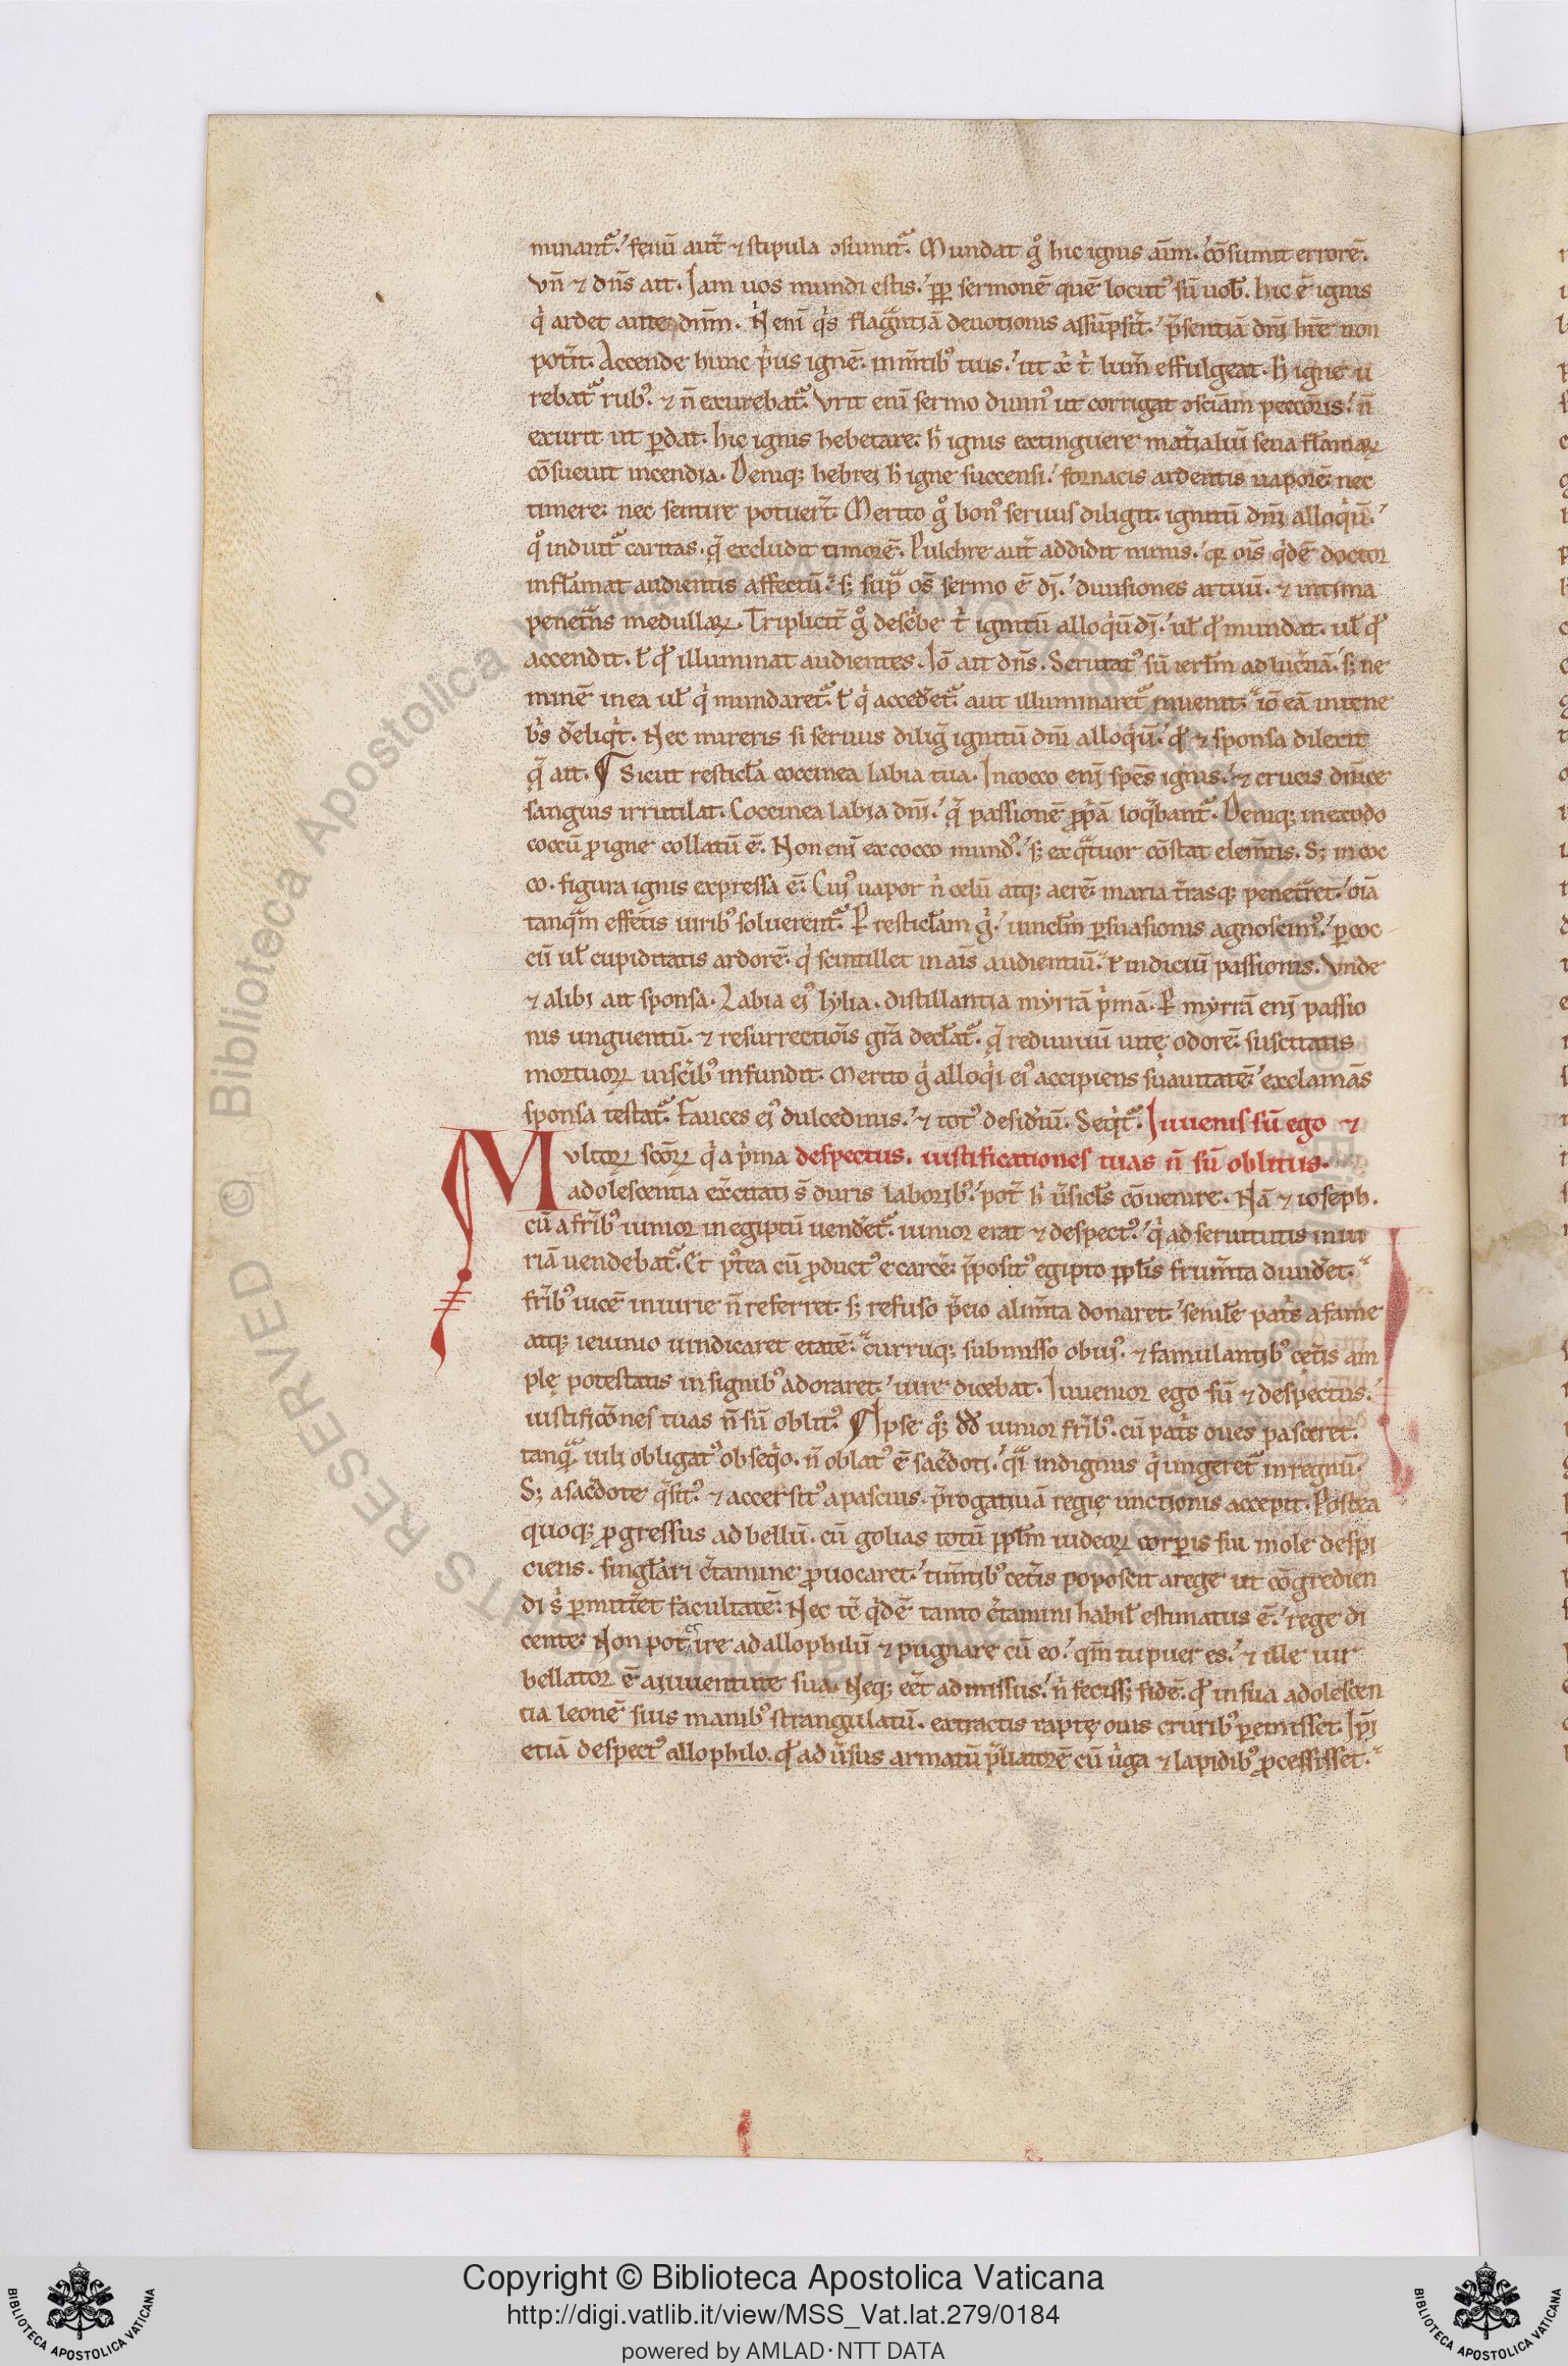 minant᷑. fenū aut̄ ⁊ stipula ↄsumit᷑. Mundat gͦ hic ignis aīm. cōsumit errorē.
Vn̄ ⁊ dn̄s ait. Iam uos mundi estis. ꝓp̄ sermonē quē locutꝰ sū uob̄. hic ē ignis
qͥ ardet ante dn̄m. N̄ enī qͥs flagͣntiā deuotionis assūpsit̄. p̄sentiā dn̄j hr̄e non
pot̄it. Accende hunc pͥus ignē. in m̄tibꝰ tuis. ut x̄ tͥ lum̄ effulgeat. h̄ igne u
rebat᷑ rubꝰ. ⁊ n̄ exurebat᷑. Vrit enī sermo diuinꝰ ut corrigat ↄsciam peccōris. n̄
exurit ut ꝑdat. hic ignis hebetare. h̄ ignis extinguere mat̄ialiū seua flāmaꝝ
cōsueuit incendia. Deniqꝫ hebrei h̄ igne succensi. fornacis ardentis uaporē. nec
timere. nec sentire potuer̄t. Merito gͦ bonꝰ seruus diligit. ignitū dn̄j alloqͥū.
qͦ induit᷑ caritas. q̄ excludit timorē. Pulchre aut̄ addidit nimis. qꝛ oīs qͥdē doctor
inflāmat audientis affectū. sꝫ supͣ os̄ sermo ē dj. diuisiones artuū. ⁊ intima
penetͣns medullaꝝ. Triplicit̄ gͦ descͥbe tͥ ignitū alloqͥū dj. uł qđ mundat. uł qđ
accendit. ł qđ illuminat audientes. Iō ait dn̄s. Scrutatꝰ sū ierłm ad luc̄nā. sꝫ ne
minē in ea uł qͥ mundaret᷑. ł qͥ accēdet᷑. aut illuminaret᷑ inuenit. iō eā in tene
bͥs d̄eliqͥt. Nec mireris si seruus diliḡ ignitū dn̄j alloqͥū. qđ ⁊ sponsa dilexit
q̄ ait. ¶ Sicut resticła coccinea labia tua. In cocco enj spēs ignis. ⁊ crucis dn̄ice
sanguis irrutilat. Coccinea labia dn̄j. q̄ passionē ꝓpͥā loq̄bant᷑. Deniqꝫ in exodo
coccū ꝓ igne collatū ē. Non enī ex cocco mundꝰ. sꝫ ex qͣtuor cōstat elem̄tis. Sꝫ in coc
co. figura ignis expressa ē. Cujꝰ uapor n̄ celū atqꝫ aerē. maria t̄rasqꝫ penet̄ret. oīā
tanqͣm effetis uiribꝰ soluerent᷑. Ꝑ resticłam gͥ. uincłm ꝑsuasionis agnoscimꝰ. ꝑ coc
cū uł cupiditatis ardorē. qͥ scintillet in aīs audientiū. ł indiciū passionis. Vnde
⁊ alibj ait sponsa. Labia ejꝰ lylia. distillantia myrrā pͥmā. Ꝑ myrrā enj passio
nis unguentū. ⁊ resurrectiōis gr̄a decłat᷑. q̄ rediuiuū uitę odorē. suscitatis
mortuoꝝ uiscͥibꝰ infundit. Merito gͥ alloqͥi ejꝰ accipiens suauitatē. exclamās
sponsa testat᷑. Fauces ejꝰ dulcedinis. ⁊ totꝰ desid̄iū. Seqͥt᷑. Iuuenis sū ego ⁊
Multoꝝ scōꝝ qͥ a pͥma despectus. iustificationes tuas n̄ sū oblitus.
adolescentia ex̄citatj s̄ duris laboribꝰ. pot̄ h̄ ūsicłs cōuenire. Nā ⁊ ioseph.
cū a fr̄ibꝰ iunior in egiptū uendet᷑. iunior erat ⁊ despectꝰ. qͥ ad seruitutis iniu
riā uendebat᷑. Et pͦtea cū ꝓductꝰ e carcē. p̄positꝰ egipto ppłis frum̄ta diuid̄et.
fr̄ibꝰ uicē iniurie n̄ referret. sꝫ refuso p̄cio alim̄ta donaret. seniłe patͥs a fame
atqꝫ ieiunio uindicaret etatē. curruqꝫ submisso obuijꝰ. ⁊ famulantibꝰ cet̄is am
plę potestatis insignibꝰ adoraret. iure dicebat. Iuuenior ego sū ⁊ despectus.
iustificōnes tuas n̄ sū oblitꝰ. ¶ Ipse qͦqꝫ dđ iunior fr̄ibꝰ. cū patͥs oues pasceret.
tanqͣ. uilj obligatꝰ obseqͥo. n̄ oblatꝰ ē sac̄dotj. qͣi indignus qͥ ungeret᷑ in regnū.
Sꝫ a sac̄dote q̄sitꝰ. ⁊ accersitꝰ a pascuis. p̄rogatiuā regię unctionis accepit. Postea
quoqꝫ ꝓgressus ad bellū. cū golias totū ppłm iudeoꝝ corꝑis sui mole despi
ciens. singłari c̄tamine ꝓuocaret. tim̄tibꝰ cet̄is poposcit a rege ut cōgredien
di sͥ ꝑmitt̄et facultatē. Nec tc̄ qͥdē tanto c̄tamini habił estimatus ē. rege di
cente. Non pot̄is ire ad allophilū ⁊ pugnare cū eo. qm̄ tu puer es. ⁊ ille uir
bellator ē a iuuentute sua. Neqꝫ eēt admissus. n̄ fecissꝫ fidē. qđ in sua adolescen
tia leonē suis manibꝰ strangulatū. extractis raptę ouis cruribꝰ ꝑemisset. Ip̄j
etiā despectꝰ allophilo. qđ ad ūsus armatū p̄liatorē cū ūga ⁊ lapidibꝰ ꝓcessisset.
Copyright © Biblioteca Apostolica Vaticana
http://digi.vatlib.it/view/MSS_Vat.lat.279/0184
powered by AMLAD·NTT DATA